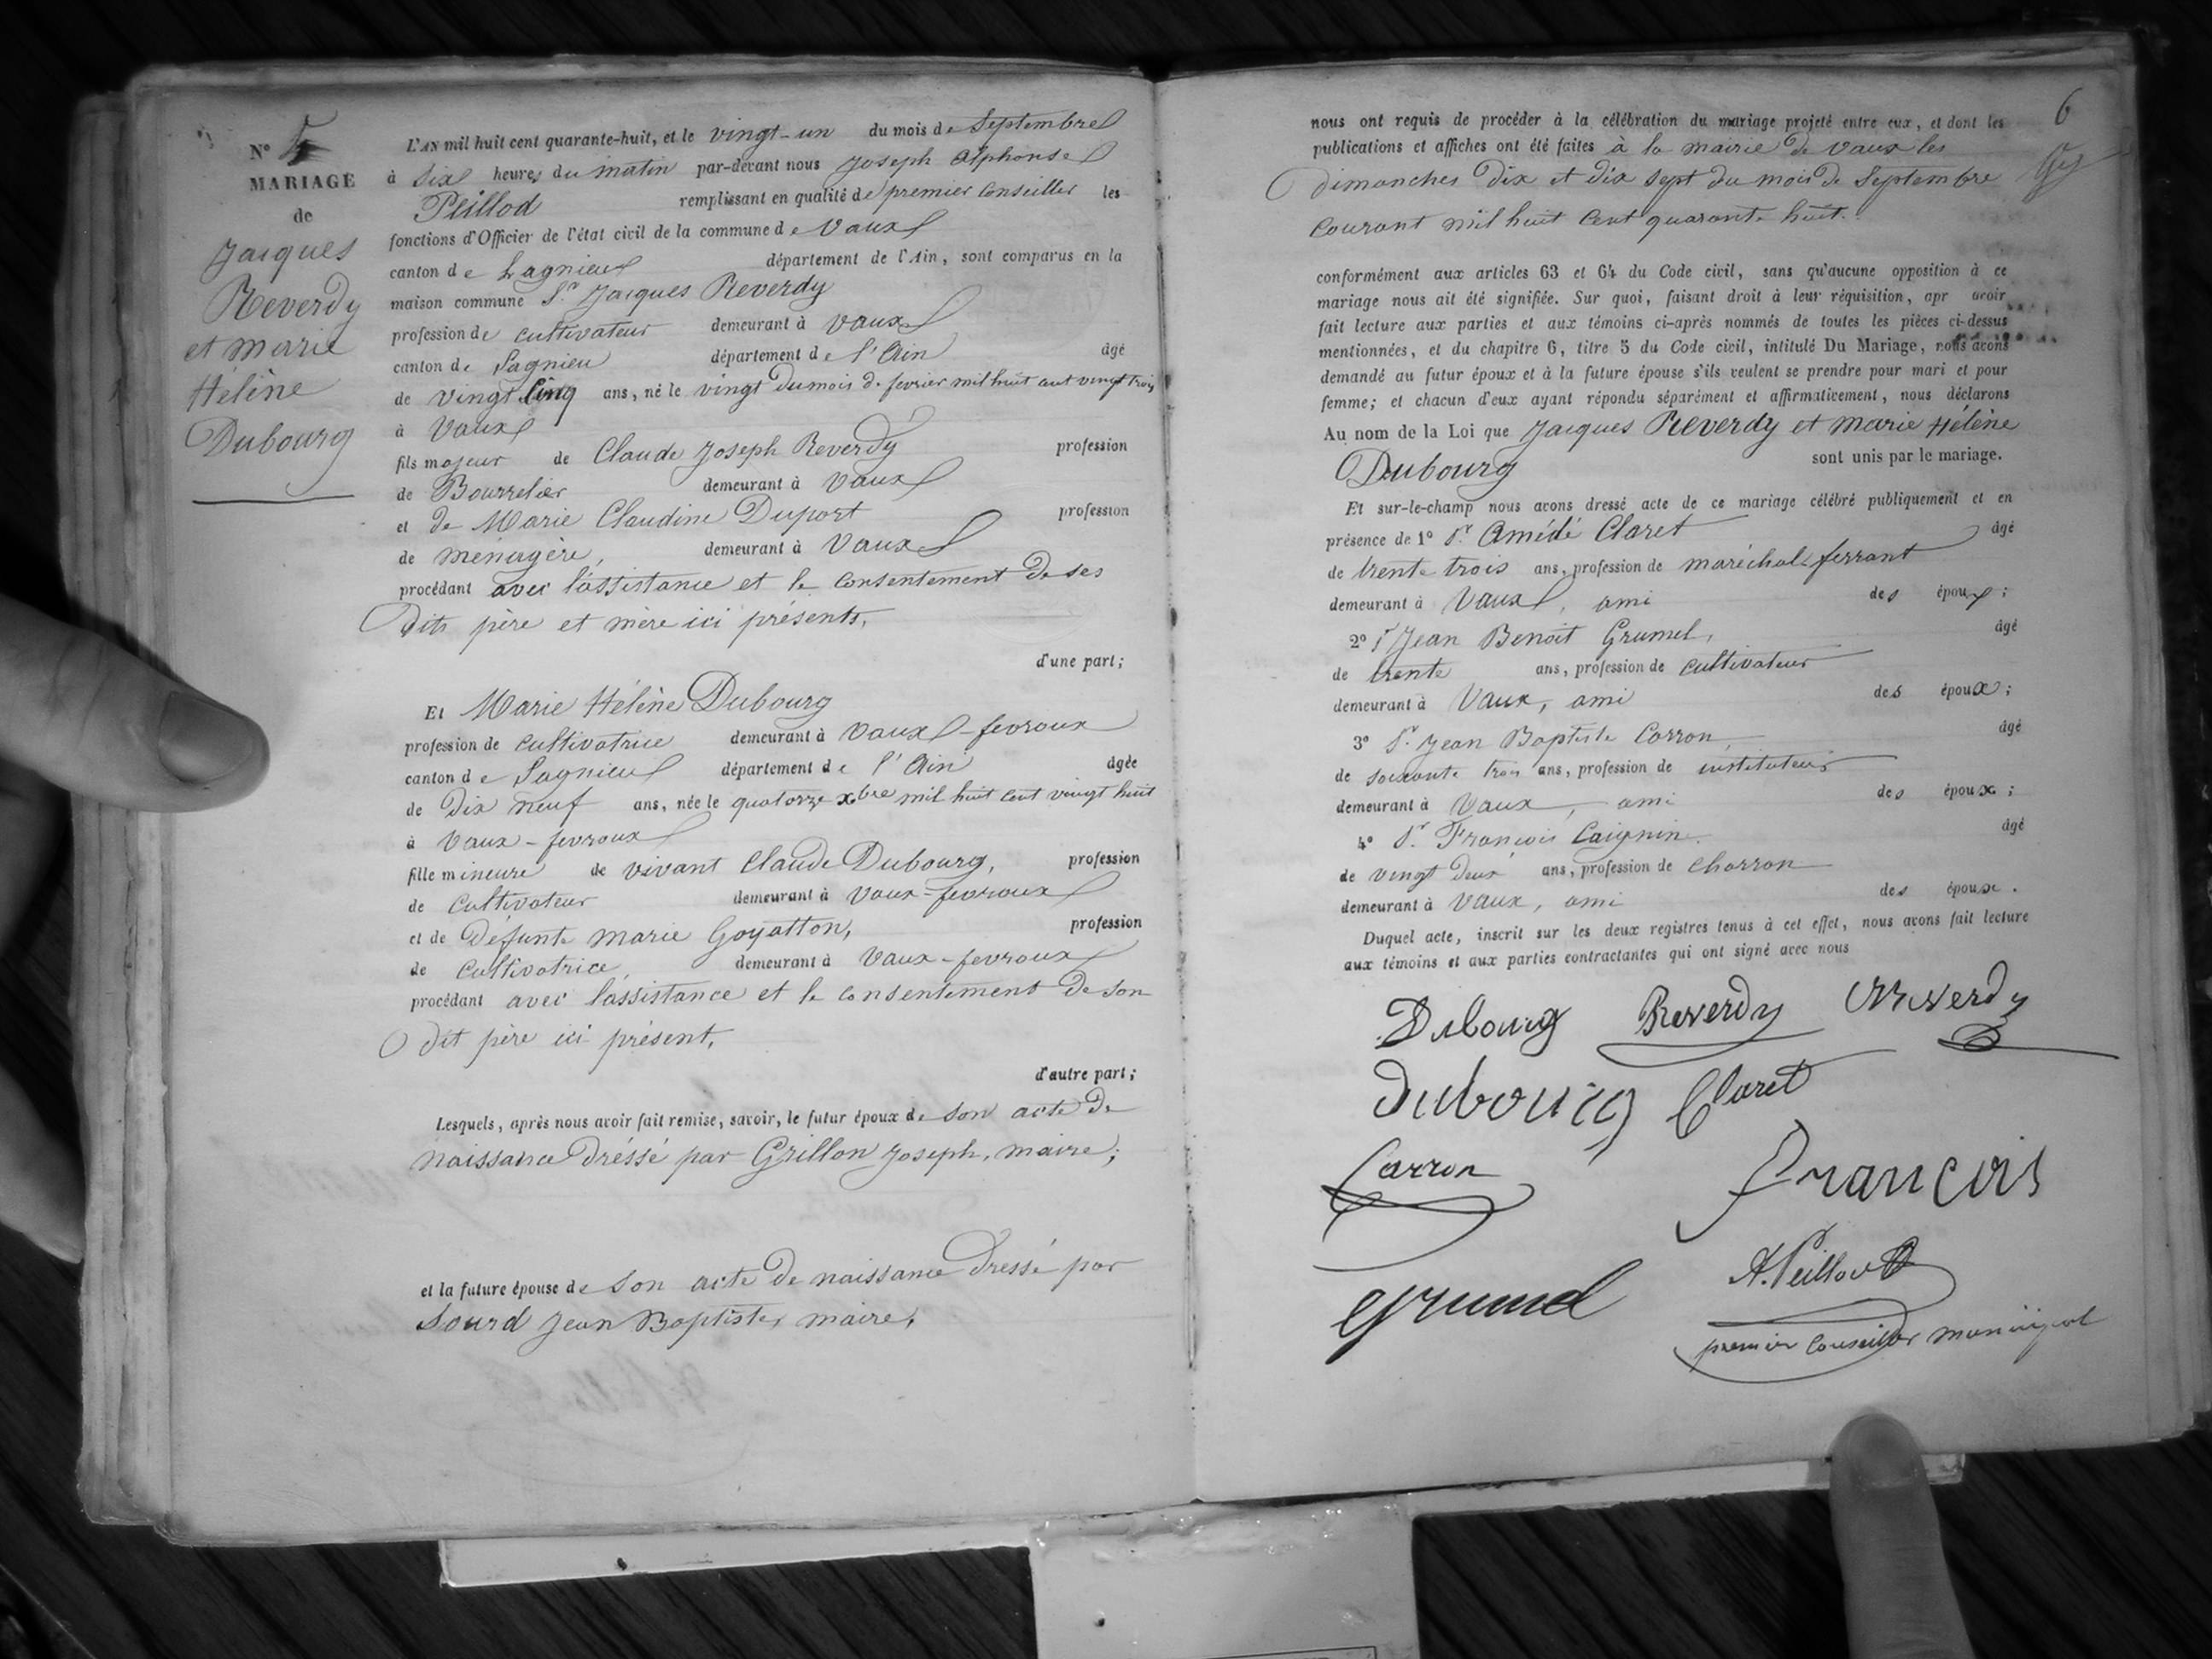 N° 5
MARIAGE
de
Jacques
Reverdy
et marie
Hélène
Dubourg
L'AN mil huit cent quarante-huit, et le vingt-un du mois de Septembre
à six heures du matin par-devant nous Joseph Alphonse
Peillod remplissant en qualité de premier Conseiller les
fonctions d'Officier de l'état civil de la commune de Vaux
canton de Lagnieu département de l'Ain, sont comparus en la
maison commune Sr. Jacques Reverdy
profession de cultivateur demeurant à Vaux
canton de Lagnieu département de l'Ain âgé
de vingt cinq ans, né le vingt du mois de fevrier mil huit cent vingt trois
à Vaux
fils majeur de Claude Joseph Reverdy profession
de Bourrelier demeurant à Vaux
et de Marie Claudine Duport profession
de ménagère, demeurant à Vaux
procédant avec l'assistance et le consentement de ses
dits père et mère ici présents,
d'une part;
Et Marie Hélène Dubourg
profession de cultivatrice demeurant à Vaux-fevroux
canton de Lagnieu département de l'Ain âgée
de Dix neuf ans, née le quatorze xbre mil huit cent vingt huit
à Vaux-fevroux
fille mineure de vivant Claude Dubourg, profession
de Cultivateur demeurant à Vaux-fevroux
et de Défunte marie Goyatton, profession
de Cultivatrice, demeurant à Vaux-fevroux
procédant avec l'assistance et le consentement de son
dit père ici présent,
d'autre part;
Lesquels, après nous avoir fait remise, savoir, le futur époux de son acte de
naissance dréssé par Grillon Joseph, maire;
et la future épouse de son acte de naissance dressé par
Sourd Jean Baptiste, maire,
6
nous ont requis de procéder à la célébration du mariage projeté entre eux, et dont les
publications et affiches ont été faites à la mairie de Vaux les
dimanches dix et dix sept du mois de Septembre
courant mil huit cent quarante huit.
conformément aux articles 63 et 64 du Code civil, sans qu'aucune opposition à ce
mariage nous ait été signifiée. Sur quoi, faisant droit à leur réquisition, apr avoir
fait lecture aux parties et aux témoins ci-après nommés de toutes les pièces ci-dessus
mentionnées, et du chapitre 6, titre 5 du Code civil, intitulé Du Mariage, nous avons
demandé au futur époux et à la future épouse s'ils veulent se prendre pour mari et pour
femme; et chacun d'eux ayant répondu séparément et affirmativement, nous déclarons
Au nom de la Loi que Jacques Reverdy et marie Hélène
Dubourg sont unis par le mariage.
Et sur-le-champ nous avons dressé acte de ce mariage célébré publiquement et en
présence de 1° Sr. Amédé Claret âgé
de trente trois ans, profession de maréchal ferrant
demeurant à Vaux, ami des époux;
2° Sr Jean Benoit Grumel, âgé
de trente ans, profession de cultivateur
demeurant à Vaux, ami des époux;
3° Sr. Jean Baptiste Carron, âgé
de soixante trois ans, profession de instituteur
demeurant à Vaux, ami des époux;
4° Sr. François Caignin. âgé
de vingt deux ans, profession de charron
demeurant à Vaux, ami des époux.
Duquel acte, inscrit sur les deux registres tenus à cet effet, nous avons fait lecture
aux témoins et aux parties contractantes qui ont signé avec nous
Dubourg Reverdy Reverdy
Dubourg Claret
Carron François
A. Peillod
Grumel
premier conseiller municipal